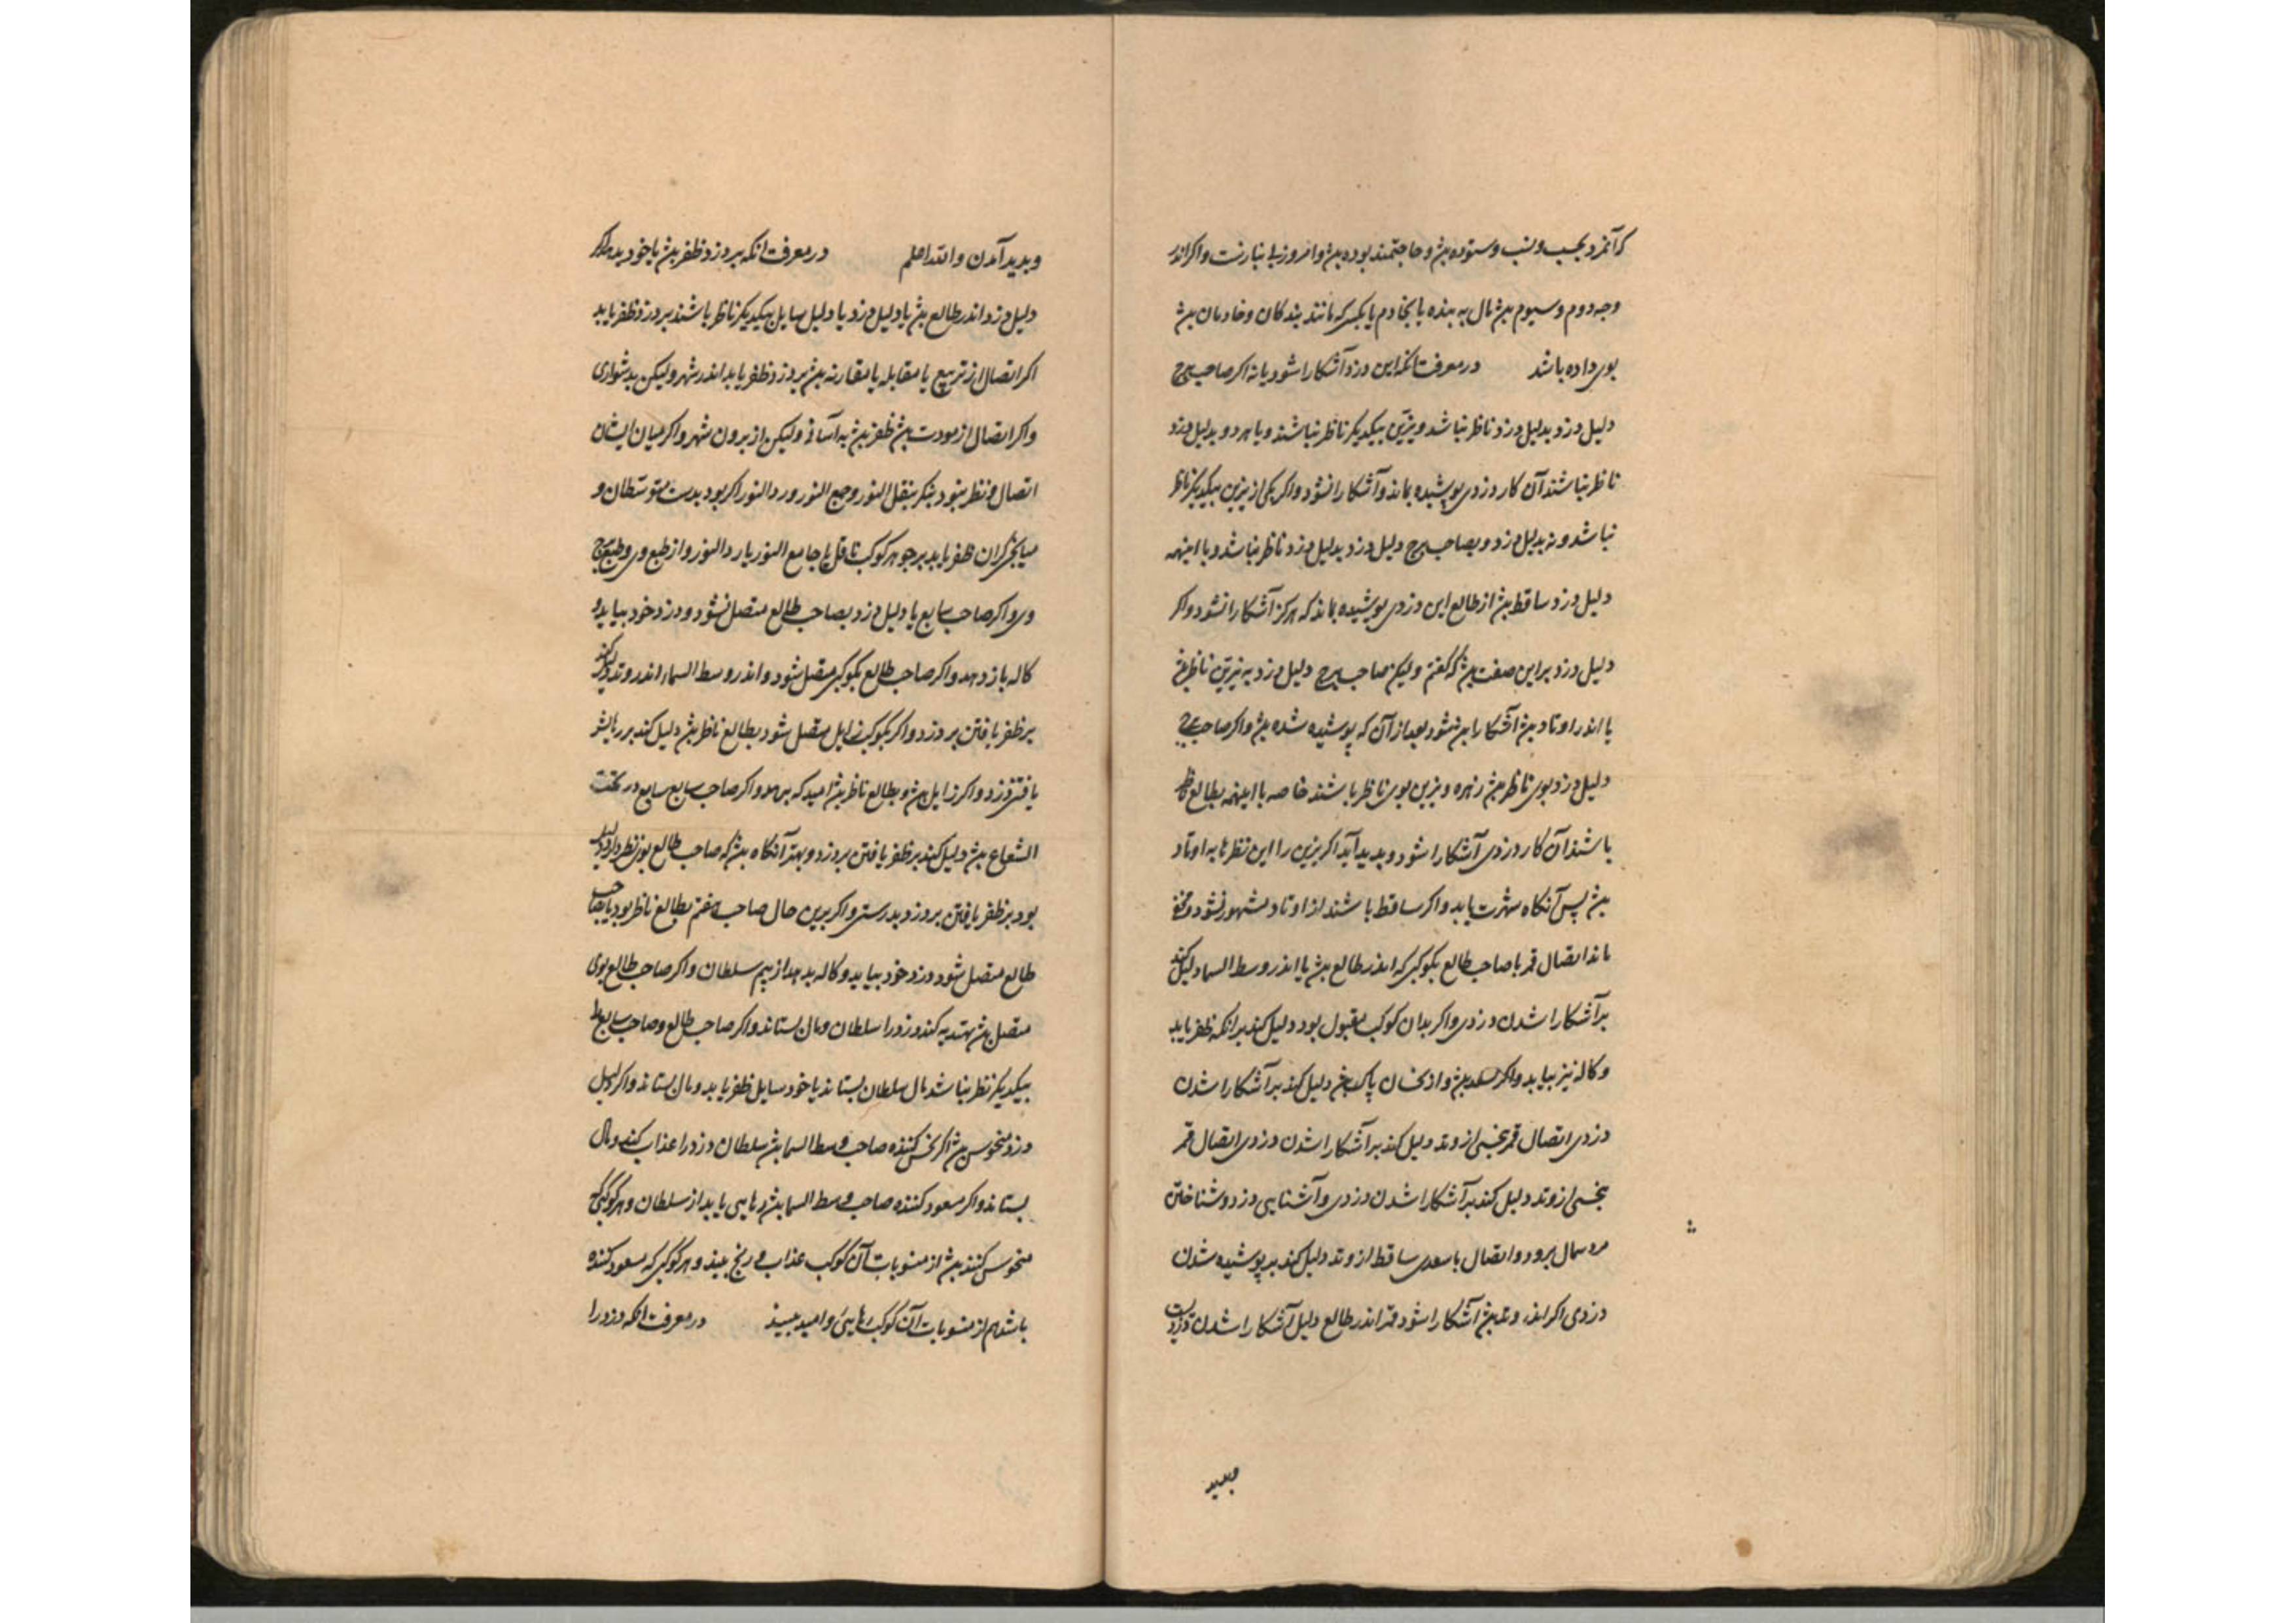 که آنمرد بحسب و نسب و ستوده بش و حاجتمند بوده بش و امروز بی نیازست و اکر اندر
وجه دوم و سیوم بش مال به بنده یا بخادم یا بکسی که مانند بندکان و خادمان بش
بوی داده باشد در معرفت انکه این دزد آشکارا شود یا نه اکر صاحب برج
دلیل دزد بدلیل دزد ناظر نباشد و نیرین بیکدیکر ناظر نباشند و یا هر دو بدلیل دزد
ناظر نباشند آن کار دزدی پوشیده بماند و آشکارا نشود و اکر یکی از نیرین بیکدیکر ناظر
نباشد و نه بدلیل دزد و بصاحب برج دلیل دزد بدلیل دزد ناظر نباشد و با اینهمه
دلیل دزد ساقط بش از طالع این دزدی پوشیده بماند که هرکز آشکارا نشود و اکر
دلیل دزد براین صفت بش که کفتم ولیکن صاحب برج دلیل دزد به نیرین ناظر بش
یا اندر اوتاد بش آشکارا بعد از آن که پوشیده شده بش و اکر صاحب برج
دلیل دزد بوی ناظر بش زهره و نیرین بوی ناظر باشند خاصه با اینهمه بطالع ناظر
باشند آن کار دزدی آشکارا شود و بدید آید اکر نیرین را این نظرها به اوتاد
بش پس آنکاه شهرت یابد و اکر ساقط باشند از اوتاد مشهور نشود و مخفی
ماند اتصال قمر با صاحب طالع بکوکبی که اندر طالع بش یا اندر وسط السما دلیل کند
بر آشکارا شدن دزدی و اکر بدان کوکب مقبول بود دلیل کند برانکه ظفر یابد
و کاله نیز بیابد و اکر سعد بش و از نحسان پاک بش دلیل کند بر آشکارا شدن
دزدی اتصال قمر بنحسی از وتد دلیل کند بر آشکارا شدن دزدی اتصال قمر
بنحسی از وتد دلیل کند بر آشکارا شدن دزدی و آشنایی دزد و شناختن
مردمان برود و اتصال با سعدی ساقط از وتد دلیل کند بر پوشیده شدن
دزدی اکر اندر وتد بش آشکارا شود قمر اندر طالع دلیل آشکارا شدن دزدیست
و بدید آمدن والله اعلم در معرفت انکه بر دزد ظفر بش یا خود بدهد اکر
دلیل دزد اندر طالع بش یا دلیل دزد با دلیل سایل بیکدیکر ناظر باشند بر دزد ظفر یابد
اکر اتصال از تربیع یا مقابله یا مقارنه بش بر دزد ظفر یابد اندر شهر ولیکن بدشواری
و اکر اتصال از مودت بش ظفر بش به آسانی ولیکن از برون شهر و اکر میان ایشان
اتصال و نظر نبود بنکر بنقل النور و جمع النور و رد النور اکر بود بدست متوسطان و
میانجی کران ظفر یابد بر جوهر کوکب ناقل یا جامع النور یا رد النور و از طبع وی و طبع برج
وی و اکر صاحب سابع یا دلیل دزد بصاحب طالع متصل شود دزد خود بیاید و
کاله باز دهد و اکر صاحب طالع بکوکبی متصل شود و اندر وسط السماء اندر وتد دلیل کند
بر ظفر یافتن بر دزد و اکر بکوکب زایل متصل شود بطالع ناظر بش دلیل کند بر
یافتن دزد و اکر زایل بش و بطالع ناظر بش امید که بدهد و اکر صاحب سابع سابع در تحت
الشعاع بش دلیل کند بر ظفر یافتن بر دزد و بهتر آنکاه بش که صاحب طالع بوی نظر دارد دلیل
بود بر ظفر یافتن بر دزد بدرستی و اکر برین حال صاحب هفتم بطالع ناظر بود یا بصاحب
طالع متصل شود دزد خود بیاید و کاله بدهد از بیم سلطان و اکر صاحب طالع بوی
متصل بش دزد را سلطان و مال بستاند و اکر صاحب طالع و صاحب سابع را
بیکدیکر نظر نباشد مال سلطان بستاند یا خود سایل ظفر یابد و مال بستاند و اکر دلیل
دزد منحوس بش اکر نحس کننده صاحب وسط السما بش سلطان دزد را عذاب کند و مال
بستاند و اکر مسعود کننده صاحب وسط السما بش رهایی یابد از سلطان و هر کوکبی که
منحوس کننده بش از منسوبات آن کوکب عذاب و رنج بیند و هر کوکبی که مسعود کننده
باشد هم از منسوبات آن کوکب رهایی و امید ببیند در معرفت انکه دزد را